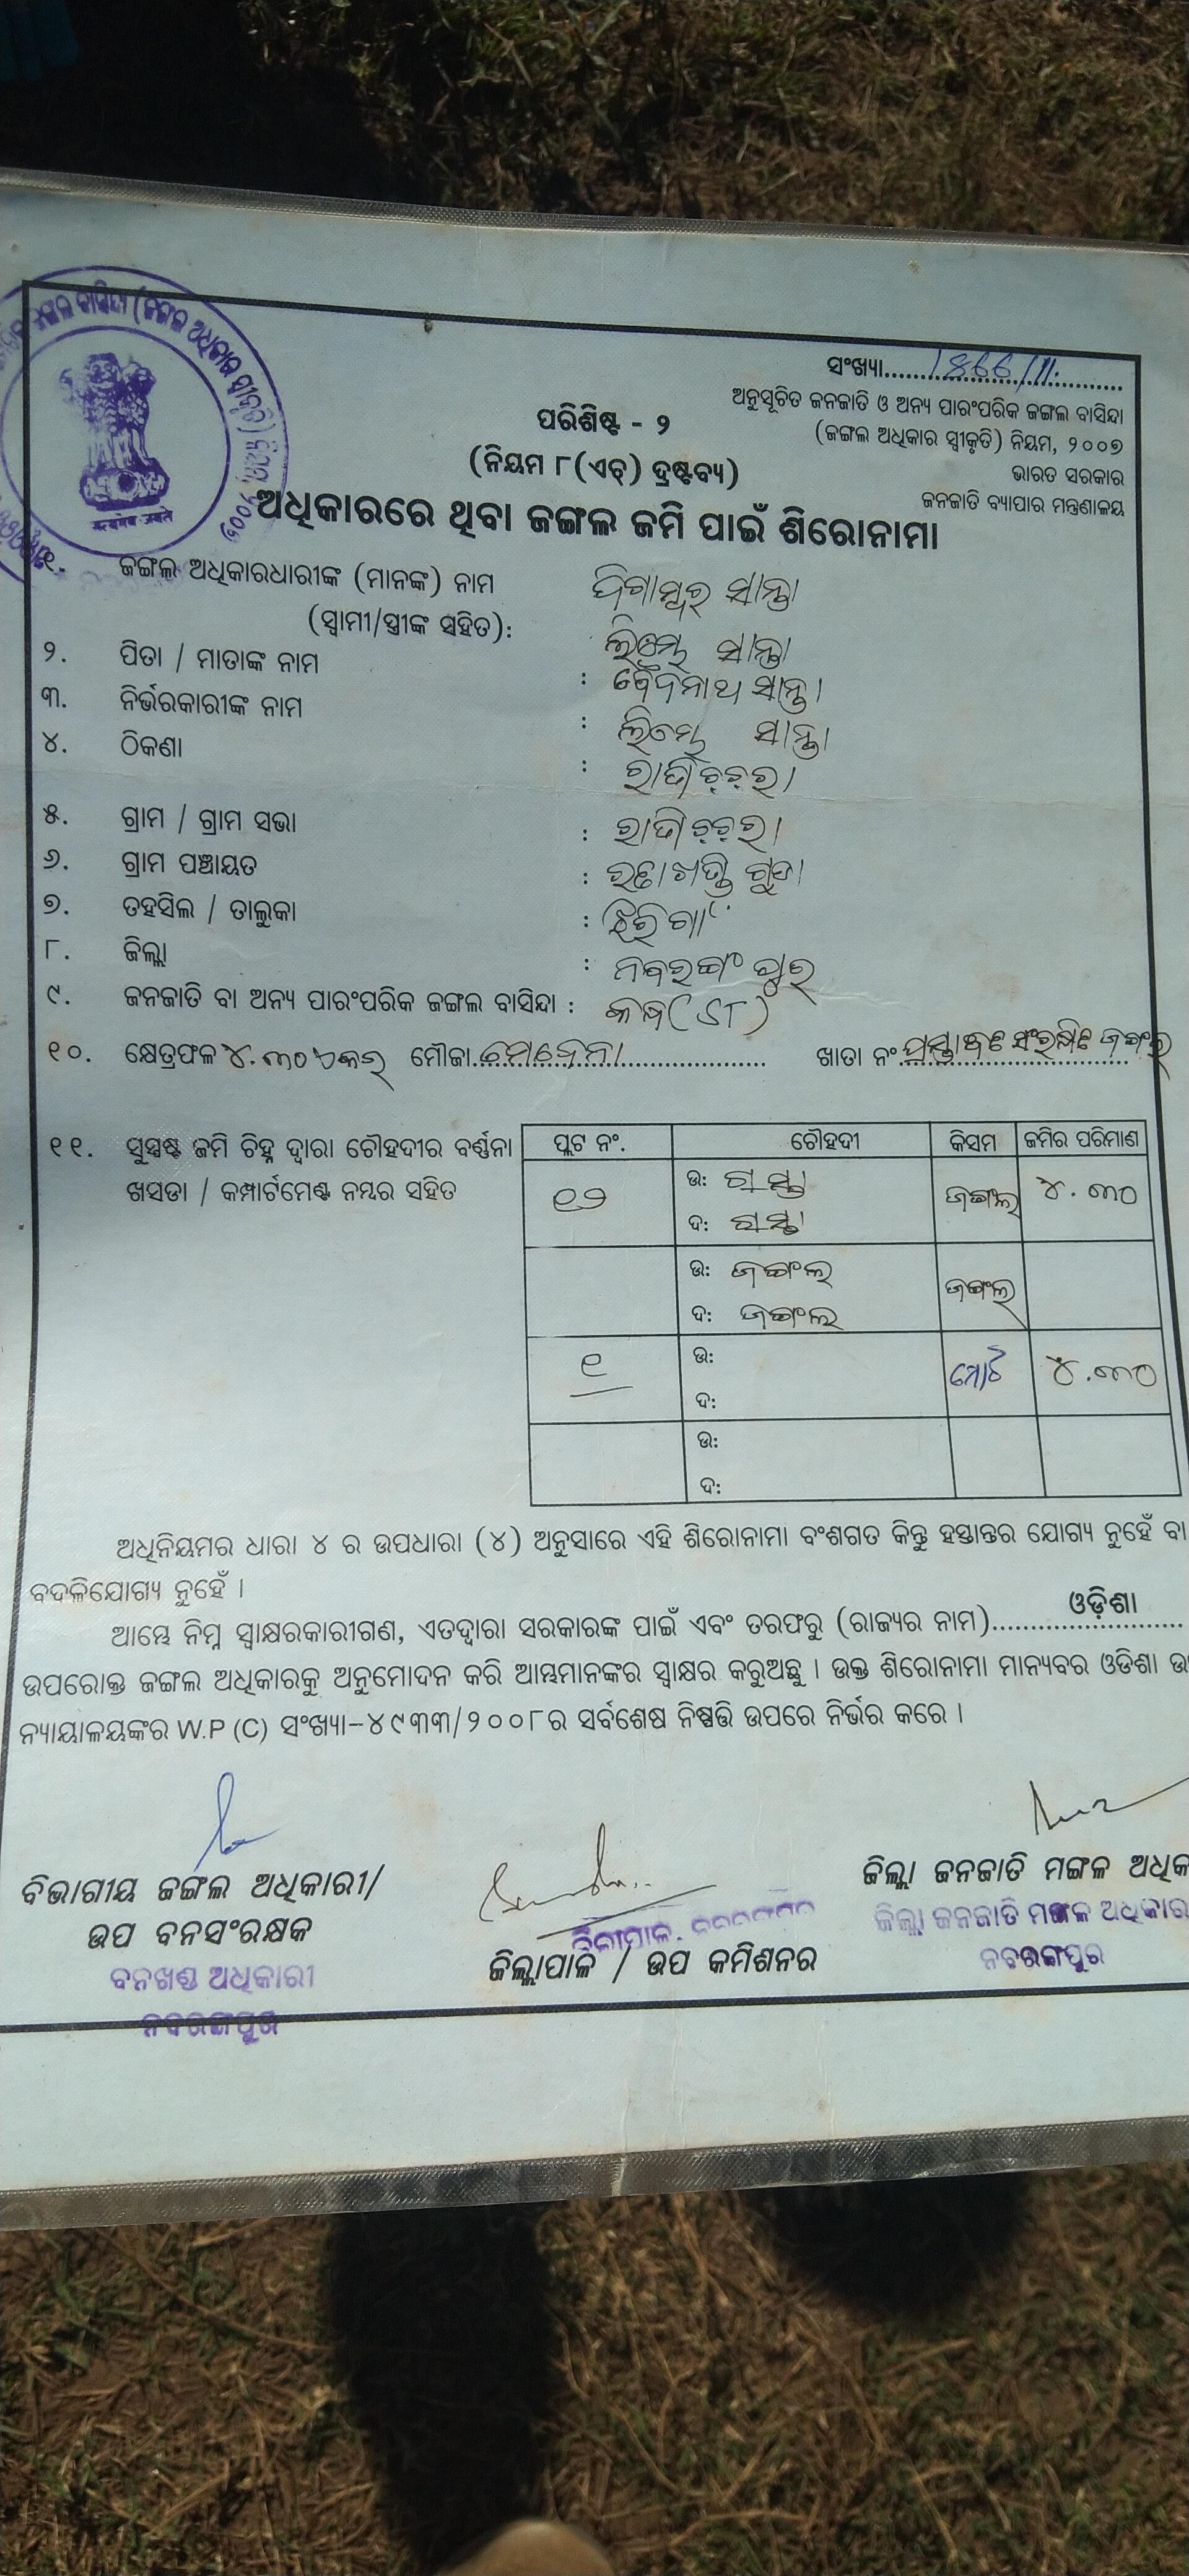 ସଂଖ୍ୟା.........1866/11.........
ଅନୁସୂଚିତ ଜନଜାତି ଓ ଅନ୍ୟ ପାରଂପରିକ ଜଙ୍ଗଲ ବାସିନ୍ଦା
(ଜଙ୍ଗଲ ଅଧିକାର ସ୍ୱୀକୃତି) ନିୟମ, ୨୦୦୭
ଭାରତ ସରକାର
ଜନଜାତି ବ୍ୟାପାର ମନ୍ତ୍ରଣାଳୟ
ପରିଶିଷ୍ଟ - ୨
(ନିୟମ ୮(ଏଚ୍) ଦ୍ରଷ୍ଟବ୍ୟ)
ଅଧିକାରରେ ଥିବା ଜଙ୍ଗଲ ଜମି ପାଇଁ ଶିରୋନାମା
୧. ଜଙ୍ଗଲ ଅଧିକାରଧାରୀଙ୍କ (ମାନଙ୍କ) ନାମ ଦିଗାମ୍ବର ସାନ୍ତା
(ସ୍ୱାମୀ/ସ୍ତ୍ରୀଙ୍କ ସହିତ): ସାନ୍ତା
୨. ପିତା / ମାତାଙ୍କ ନାମ : ବୈଦନାଥ ସାନ୍ତା
୩. ନିର୍ଭରକାରୀଙ୍କ ନାମ : ସାନ୍ତା
୪. ଠିକଣା :
୫. ଗ୍ରାମ / ଗ୍ରାମ ସଭା :
୬. ଗ୍ରାମ ପଞ୍ଚାୟତ :
୭. ତହସିଲ / ତାଲୁକା : ଝରିଗାଁ
୮. ଜିଲ୍ଲା : ନବରଙ୍ଗପୁର
୯. ଜନଜାତି ବା ଅନ୍ୟ ପାରଂପରିକ ଜଙ୍ଗଲ ବାସିନ୍ଦା : କନ୍ଧ (ST)
୧୦. କ୍ଷେତ୍ରଫଳ ୪.୩୦ ଏକର ମୌଜା........ ଖାତା ନଂ ପ୍ରସ୍ତାବିତ ସଂରକ୍ଷିତ ଜଙ୍ଗଲ
୧୧. ସୁସ୍ପଷ୍ଟ ଜମି ଚିହ୍ନ ଦ୍ୱାରା ଚୌହଦୀର ବର୍ଣ୍ଣନା
ଖସଡା / କମ୍ପାର୍ଟମେଣ୍ଟ ନମ୍ବର ସହିତ
ପ୍ଲଟ ନଂ. ଚୌହଦୀ କିସମ ଜମିର ପରିମାଣ
୧୨ ଉ: ରାସ୍ତା ଜଙ୍ଗଲ ୪.୩୦
ଦ: ରାସ୍ତା
ଉ: ଜଙ୍ଗଲ ଜଙ୍ଗଲ
ଦ: ଜଙ୍ଗଲ
୧ ଉ: ମୋଟ ୪.୩୦
ଦ:
ଉ:
ଦ:
ଅଧିନିୟମର ଧାରା ୪ ର ଉପଧାରା (୪) ଅନୁସାରେ ଏହି ଶିରୋନାମା ବଂଶଗତ କିନ୍ତୁ ହସ୍ତାନ୍ତର ଯୋଗ୍ୟ ନୁହେଁ ବା
ବଦଳିଯୋଗ୍ୟ ନୁହେଁ ।
ଆମ୍ଭେ ନିମ୍ନ ସ୍ୱାକ୍ଷରକାରୀଗଣ, ଏତଦ୍ୱାରା ସରକାରଙ୍କ ପାଇଁ ଏବଂ ତରଫରୁ (ରାଜ୍ୟର ନାମ)........ଓଡ଼ିଶା........
ଉପରୋକ୍ତ ଜଙ୍ଗଲ ଅଧିକାରକୁ ଅନୁମୋଦନ କରି ଆମ୍ଭମାନଙ୍କର ସ୍ୱାକ୍ଷର କରୁଅଛୁ । ଉକ୍ତ ଶିରୋନାମା ମାନ୍ୟବର ଓଡିଶା ଉ
ନ୍ୟାୟାଳୟଙ୍କର W.P (C) ସଂଖ୍ୟା-୪୯୩୩/୨୦୦୮ର ସର୍ବଶେଷ ନିଷ୍ପତ୍ତି ଉପରେ ନିର୍ଭର କରେ ।
ବିଭାଗୀୟ ଜଙ୍ଗଲ ଅଧିକାରୀ/
ଉପ ବନସଂରକ୍ଷକ
ବନଖଣ୍ଡ ଅଧିକାରୀ
ନବରଙ୍ଗପୁର
ଜିଲ୍ଲାପାଳ / ଉପ କମିଶନର
ଜିଲ୍ଲା ଜନଜାତି ମଙ୍ଗଳ ଅଧିକା
ଜିଲ୍ଲା ଜନଜାତି ମଙ୍ଗଳ ଅଧିକାର
ନବରଙ୍ଗପୁର